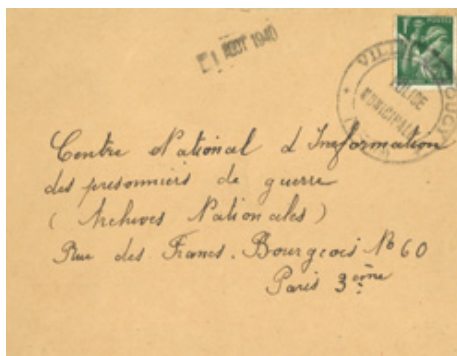 1 AOUT 1940
POSTES
POLICE
MUNICIPALE
Centre National d'Information
des prisonniers de guerre
(Archives Nationales)
Rue des Francs. Bourgeois No 60
Paris 3ème